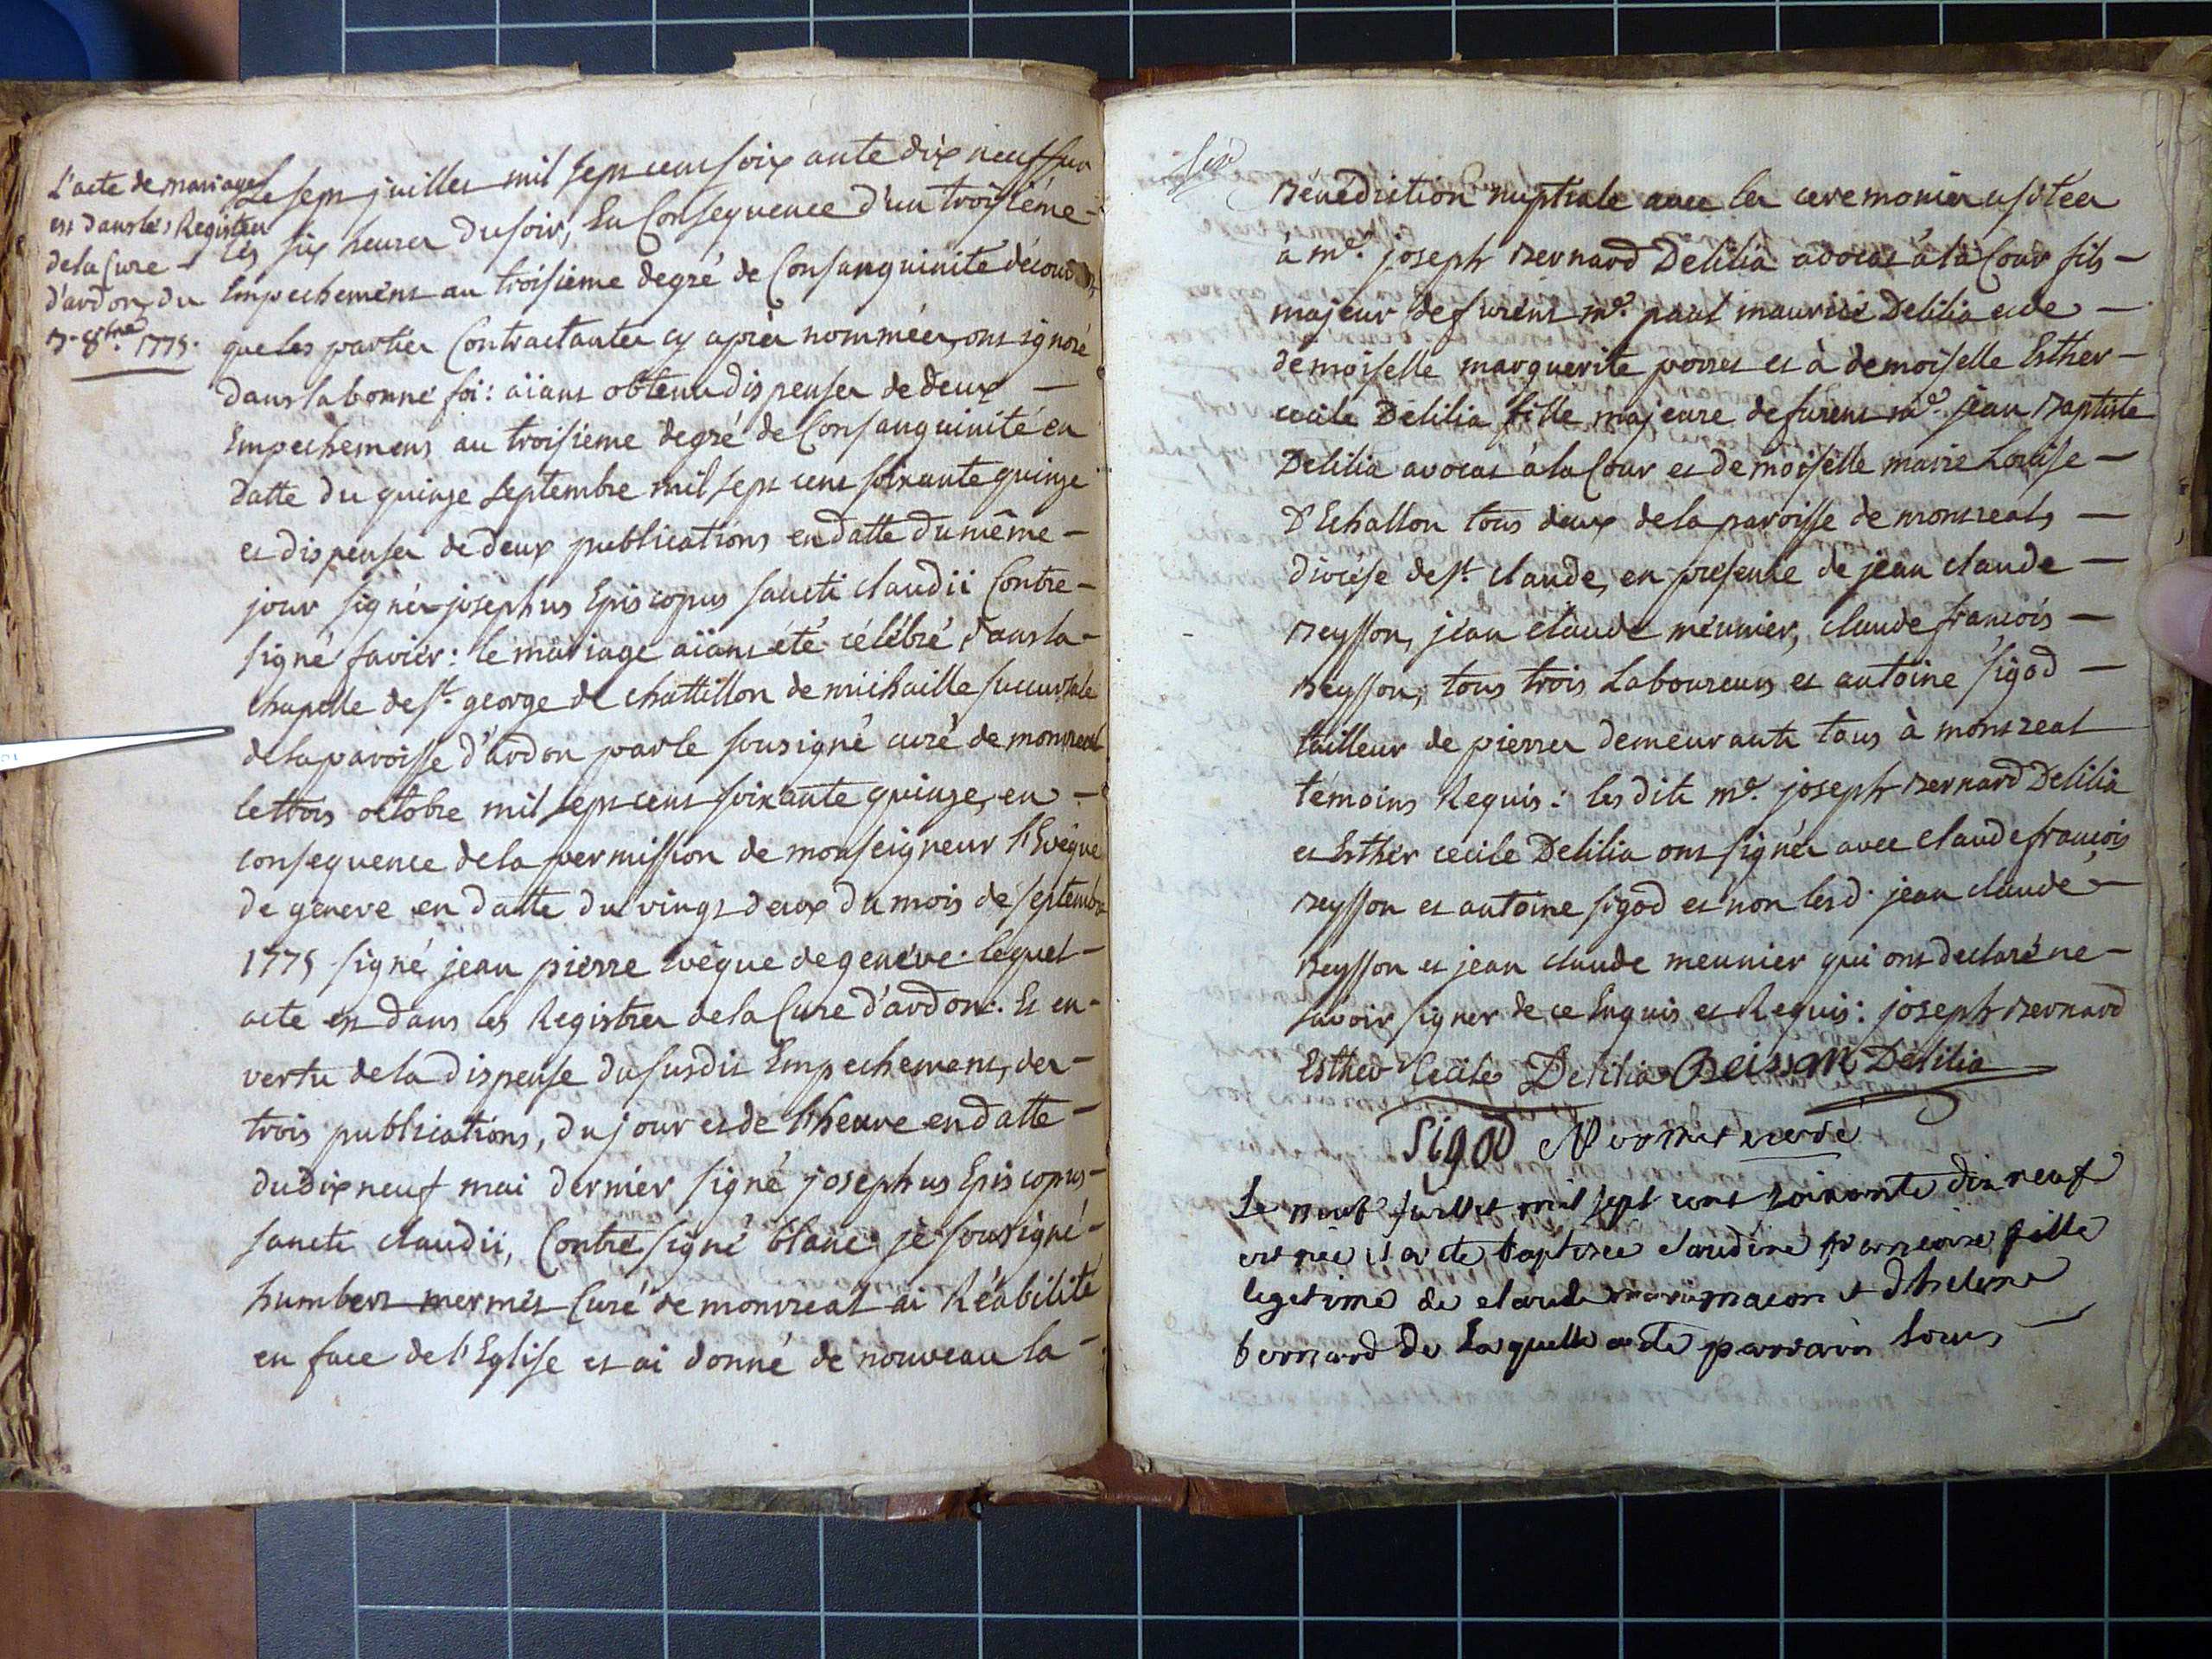 L'acte de mariage
est dans les Registres
de la Cure
d'ardon, du
3. 8bre 1775.
Le sept juillet mil sept cent soixante dix neuf sur
les six heures du soir, En Consequence d'un troisiéme
Empechement au troisieme degré de Consanguinité découvert,
que les parties Contractantes cy après nommées, ont ignoré
dans la bonne foi: aïant obtenu dispenses de deux
Empechemens au troisieme degré de Consanguinité en
datte du quinze septembre mil sept cent soixante quinze
et dispenses de deux publications en datte du même
jour signées josephus Episcopus sancti claudii Contre-
signé favier: le mariage aïant été célébré dans la
chapelle de st george de chattillon de michaille succursale
de la paroisse d'ardon par le sousigné curé de montreal
le trois octobre mil sept cent soixante quinze, en
consequence de la permission de monseigneur l'Evêque
de geneve en datte du vingt deux du mois de septembre
1775 signé jean pierre evêque de genéve. lequel
acte est dans les Registres de la Cure d'ardon. Et en
vertu de la dispense du susdit Empechement, des
trois publications, du jour et de l'heure en datte
du dix neuf mai dernier signé josephus Episcopus
sancti claudii, Contre signé blanc je sousigné
humbert mermet Curé de montreal ai Réabilité
en face de l'Eglise et ai donné de nouveau la
Bénédiction nuptiale avec les ceremonies usitées
à me. joseph Bernard Delilia avocat à la Cour fils
majeur de furent me. paul maurice Delilia et de
demoiselle marguerite porret et à demoiselle Esther
cecile Delilia fille majeure de furent me. jean Baptiste
Delilia avocat à la Cour et demoiselle marie Louise
D'Echallon tous deux de la paroisse de montreal,
diocése de st. claude, en presence de jean claude
Beysson, jean claude meunier, claude francois
Beysson, tous trois Laboureurs et antoine sigod
tailleur de pierres demeurants tous à montreal
témoins Requis: les dits me. joseph Bernard Delilia
et Esther cecile Delilia ont signés avec claude françois
Beysson et antoine sigod et non lesd. jean claude
Beysson et jean claude meunier qui ont declaré ne
savoir signer de ce Enquis et Requis: joseph Bernard
Esther Cecile Delilia Beisson Delilia
Sigod Mermet curé
Le neuf juillet mil sept cent soixante dix neuf
est née et a été baptisée claudine francoise fille
legitime de claude marie macon et d'helene
bernard de laquelle a été parrain louis